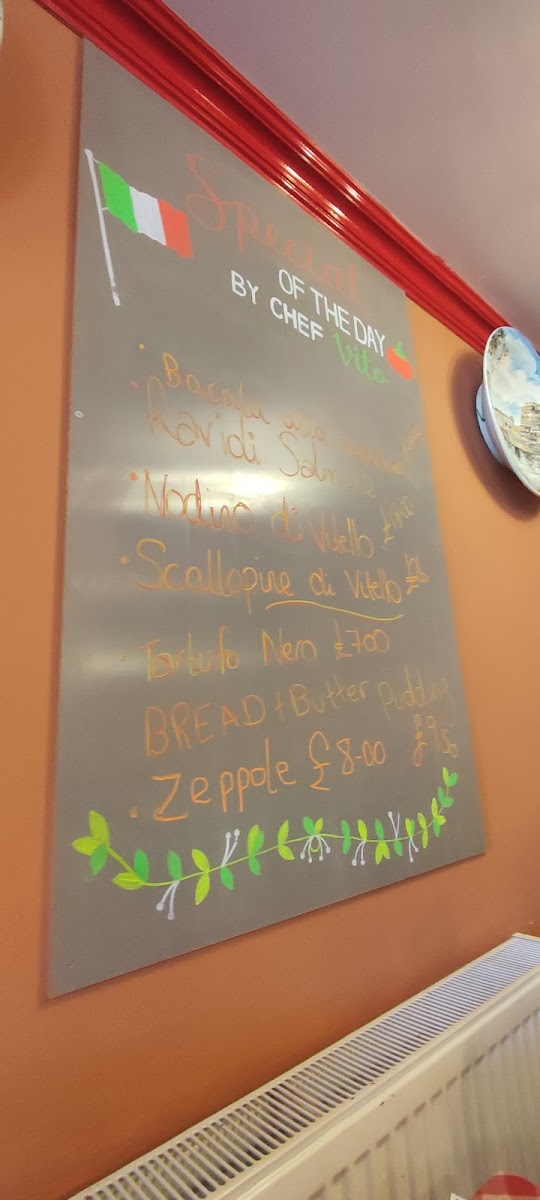 Special
OF THE DAY
BY CHEF Vito
• Bacala alla
• Ravioli Salmone
• Nodino di Vitello
• Scallopine di Vitello
• Tartufo Nero £700
BREAD + Butter Pudding £9.50
• Zeppole £8-00